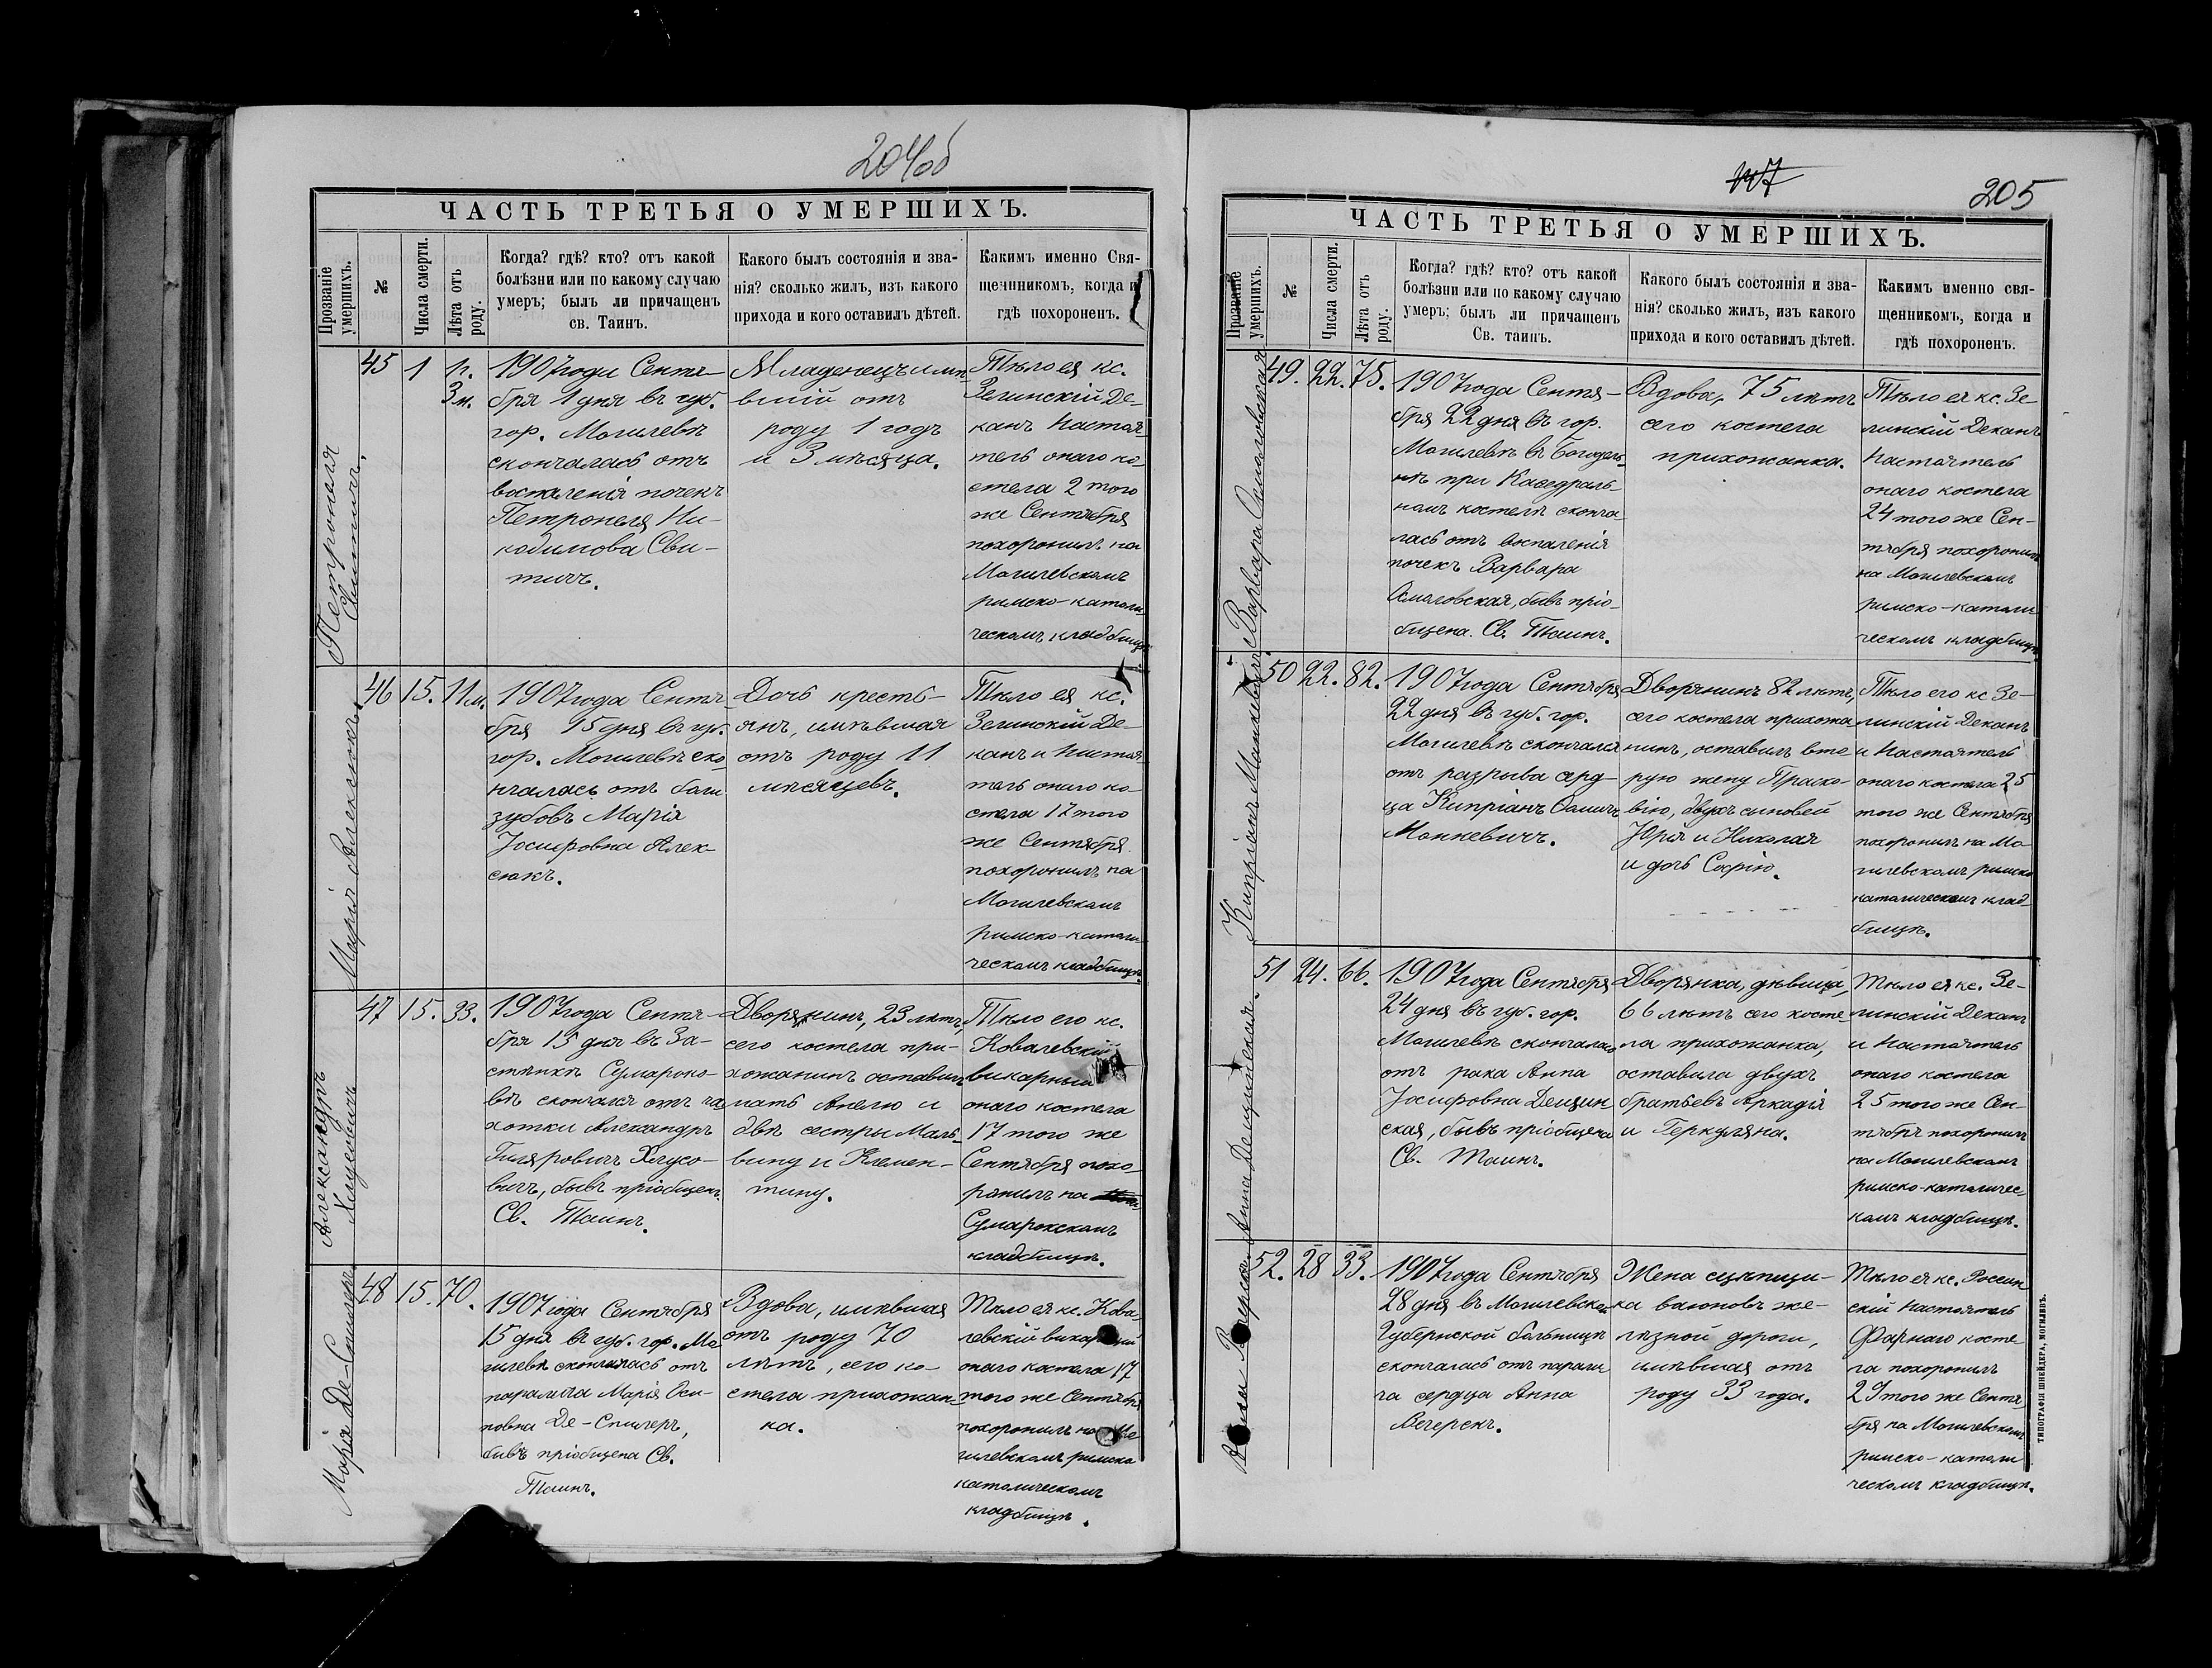 204об
ЧАСТЬ ТРЕТЬЯ О УМЕРШИХЪ.
Прозваніе умершихъ.
№
Числа смерти.
Лѣта отъ роду.
Когда? гдѣ? кто? отъ какой
болѣзни или по какому случаю
умеръ; былъ ли причащенъ
св. Таинъ.
Какого былъ состоянія и зва-
нія? сколько жилъ, изъ какого
прихода и кого оставилъ дѣтей.
Какимъ именно Свя-
щенникомъ, когда и
гдѣ похороненъ.
Петронеля
Свитичъ.
45
1
1г.
3м.
1907 года Сентя-
бря 1 дня въ губ.
гор. Могилевѣ
скончалась отъ
воспаленія почекъ
Петронеля Ни-
кодимова Сви-
тичъ.
Младенецъ имѣ-
вшій отъ
роду 1 годъ
и 3 мѣсяца.
Тѣло ея кс.
Зелинскій Де-
канъ Настоя-
тель онаго ко-
стела 2 того
же Сентября
похоронилъ на
Могилевскомъ
римско-католи-
ческомъ кладбищѣ
Марія Алексюкъ.
46
15.
11м.
1907 года Сентя-
бря 15 дня въ губ.
гор. Могилевѣ ско-
нчалась отъ боли
зубовъ Марія
Іосифовна Алек-
сюкъ.
Дочь кресть-
янъ, имѣвшая
отъ роду 11
мѣсяцевъ.
Тѣло ея кс.
Зелинскій Де-
канъ и Настоя-
тель онаго ко-
стела 17 того
же Сентября
похоронилъ на
Могилевскомъ
римско-католи-
ческомъ кладбищѣ.
Александръ
Хлусовичъ
47
15.
33.
1907 года Сентя-
бря 15 дня въ За-
стѣнкѣ Сумароко-
вѣ скончался отъ ча-
хотки Александръ
Гиляровичъ Хлусо-
вичъ, бывъ пріобщенъ
Св. Таинъ.
Дворянинъ, 23 лѣтъ,
сего костела при-
хожанинъ оставилъ
мать Анелю и
двѣ сестры Маль-
вину и Клемен-
тину.
Тѣло его кс.
Ковалевскій
викарный
онаго костела
17 того же
Сентября похо-
ронилъ на
Сумарокскомъ
кладбищѣ.
Марія Де-Спиллеръ
48
15.
70.
1907 года Сентября
15 дня въ губ. гор. Мо
гилевѣ скончалась отъ
паралича Марія Оси-
повна Де-Спиллеръ,
бывъ пріобщена Св.
Таинъ.
Вдова, имѣвшая
отъ роду 70
лѣтъ, сего ко-
стела прихожан-
ка.
Тѣло ея кс. Кова-
левскій викарный
онаго костела 17
того же Сентября
похоронилъ на Мо
гилевскомъ римско
католическомъ
кладбищѣ.
205
ЧАСТЬ ТРЕТЬЯ О УМЕРШИХЪ.
Прозваніе умершихъ.
№
Числа смерти.
Лѣта отъ роду.
Когда? гдѣ? кто? отъ какой
болѣзни или по какому случаю
умеръ; былъ ли причащенъ
Св. таинъ.
Какого былъ состоянія и зва-
нія? сколько жилъ, изъ какого
прихода и кого оставилъ дѣтей.
Какимъ именно свя-
щенникомъ, когда и
гдѣ похороненъ.
Варвара
49.
22.
75.
1907 года Сентя-
бря 22 дня въ гор.
Могилевѣ въ Богодель-
нѣ при Каѳедраль-
номъ костелѣ сконча-
лась отъ воспаленія
почекъ Варвара
бывъ пріо-
бщена Св. Таинъ.
Вдова, 75 лѣтъ
сего костела
прихожанка.
Тѣло ея кс. Зе-
линскій Деканъ
Настоятель
онаго костела
24 того же Сен-
тября похоронилъ
на Могилевскомъ
римско-католи-
ческомъ кладбищѣ
Кипріанъ Манкевичъ
50
22.
82.
1907 года Сентября
22 дня въ губ. гор.
Могилевѣ скончался
отъ разрыва серд-
ца Кипріанъ
Манкевичъ.
Дворянинъ 82 лѣтъ,
сего костела прихожа
нинъ, оставилъ вто
рую жену Праско-
вію, двухъ сыновей
Юрія и Николая
и дочь Софію.
Тѣло его кс Зе-
линскій Деканъ
и Настоятель
онаго костела 25
того же Сентября
похоронилъ на Мо-
гилевскомъ римско
католическомъ клад-
бищѣ.
Анна
51
24.
66.
1907 года Сентября
24 дня въ губ. гор.
Могилевѣ скончалась
отъ рака Анна
Іосифовна Демцин-
ская, бывъ пріобщена
Св. Таинъ.
Дворянка, дѣвица,
66 лѣтъ сего косте-
ла прихожанка,
оставила двухъ
братьевъ Аркадія
и Геркуляна.
Тѣло ея кс. Зе-
линскій Деканъ
и Настоятель
онаго костела
25 того же Сен-
тября похоронилъ
на Могилевскомъ
римско-католичес-
комъ кладбищѣ.
52.
28
33.
1907 года Сентября
28 дня въ Могилевской
Губернской больницѣ
скончалась отъ парали
ча сердца Анна
Вечерекъ.
Жена сцѣпщи-
ка вагоновъ же-
лѣзной дороги,
имѣвшая отъ
роду 33 года.
Тѣло ея кс. Россин
скій Настоятель
Фарнаго косте
ла похоронилъ
29 того же Сентя
бря на Могилевскомъ
римско-католи
ческомъ кладбищѣ.
ТИПОГРАФІЯ ШНЕЙДЕРА, МОГИЛЕВЪ.